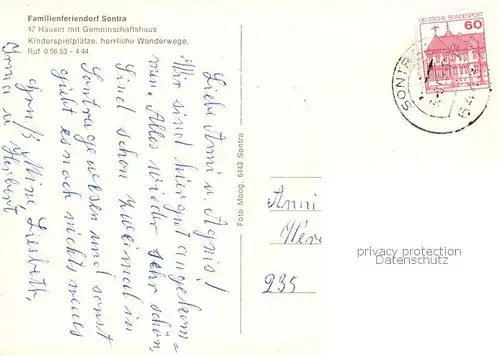 Familienferiendorf Sontra
47 Häuser mit Gemeinschaftshaus
Kinderspielplätze, herrliche Wanderwege.
Ruf 0 56 53 - 4 44
Liebe Anni u. Agnes!
Wir sind hier gut angekom=
men. Alles wieder sehr schön,
Sind schon zweimal in
Sontra gewesen und sonst
gibt es noch nichts neues
Gruß Mimi, Liesbeth,
Irma u Herbert
Foto Moog, 6443 Sontra
DEUTSCHE BUNDESPOST
60
SONTRA
Anni
Wer
235
privacy protection
Datenschutz